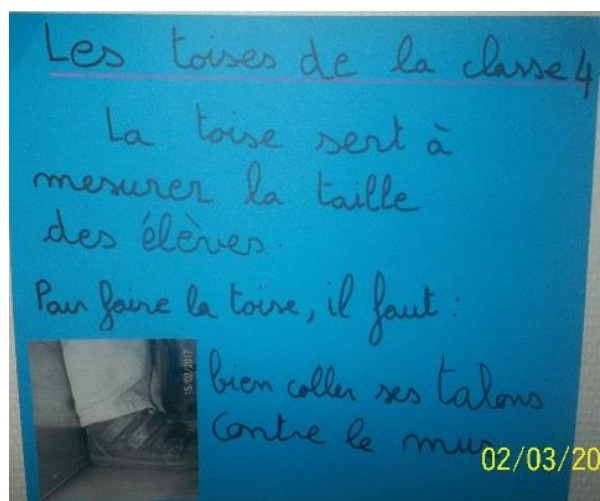 Les toises de la classe 4
La toise sert à
mesurer la taille
des élèves.
Pour faire la toise, il faut :
15/02/2017
bien coller ses talons
contre le mur
02/03/20